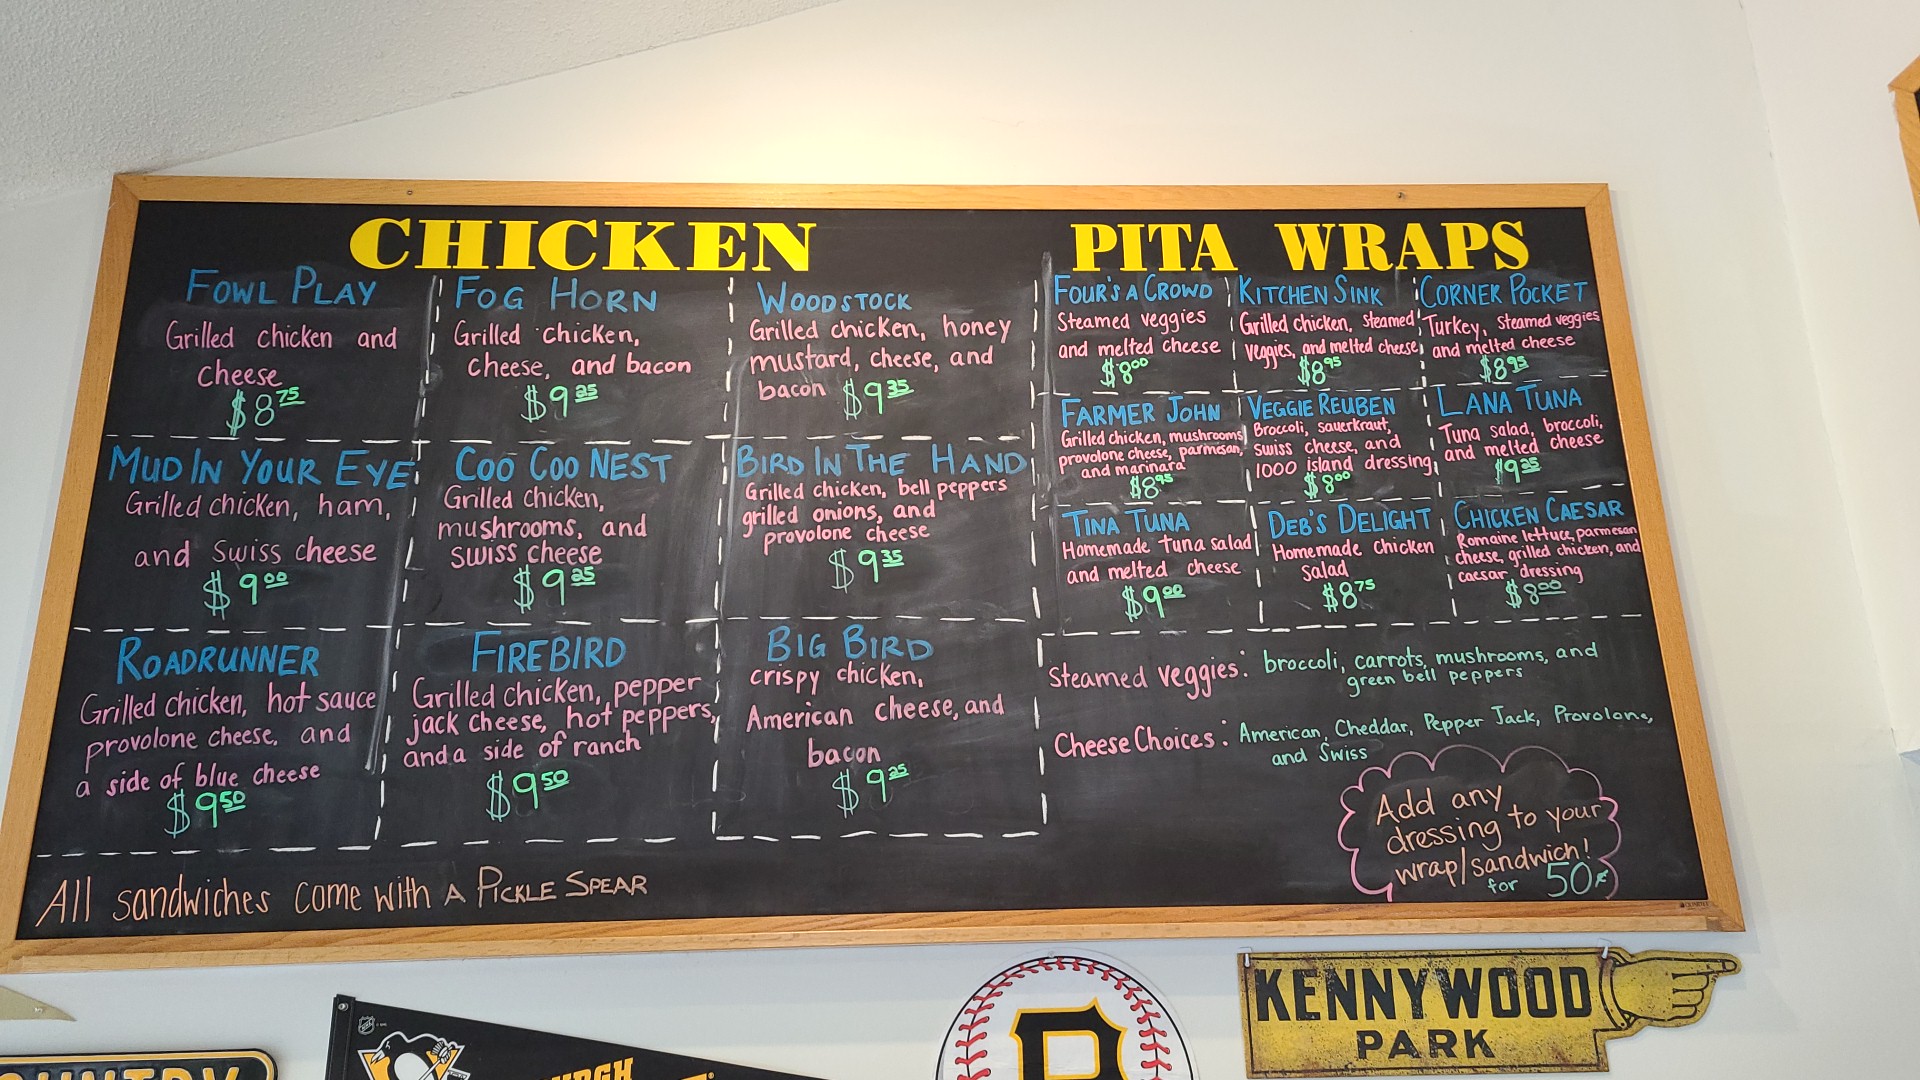 CHICKEN
FOWL PLAY
Grilled chicken and
cheese
$8.75
FOG HORN
Grilled chicken,
cheese, and bacon
$9.25
WOODSTOCK
Grilled chicken, honey
mustard, cheese, and
bacon $9.35
MUD IN YOUR EYE
Grilled chicken, ham,
and Swiss cheese
$9.00
COO COO NEST
Grilled chicken,
mushrooms, and
swiss cheese
$9.25
BIRD IN THE HAND
Grilled chicken, bell peppers
grilled onions, and
provolone cheese
$9.35
ROADRUNNER
Grilled chicken, hot sauce
provolone cheese, and
a side of blue cheese
$9.50
FIREBIRD
Grilled chicken, pepper
jack cheese, hot peppers,
and a side of ranch
$9.50
BIG BIRD
crispy chicken,
American cheese, and
bacon
$9.25
All sandwiches come with A PICKLE SPEAR
PITA WRAPS
FOUR'S A CROWD
Steamed veggies
and melted cheese
$8.00
KITCHEN SINK
Grilled chicken, steamed
veggies, and melted cheese
$8.95
CORNER POCKET
Turkey, steamed veggies
and melted cheese
$8.95
FARMER JOHN
Grilled chicken, mushrooms
provolone cheese, parmesan,
and marinara
$8.95
VEGGIE REUBEN
Broccoli, sauerkraut,
swiss cheese, and
1000 island dressing
$8.00
LANA TUNA
Tuna salad, broccoli,
and melted cheese
$9.25
TINA TUNA
Homemade tuna salad
and melted cheese
$9.00
DEB'S DELIGHT
Homemade chicken
salad
$8.75
CHICKEN CAESAR
Romaine lettuce, parmesan
cheese, grilled chicken, and
caesar dressing
$8.00
Steamed veggies: broccoli, carrots, mushrooms, and
green bell peppers
Cheese Choices: American, Cheddar, Pepper Jack, Provolone,
and Swiss
Add any
dressing to your
wrap/sandwich!
for 50¢
P
KENNYWOOD
PARK